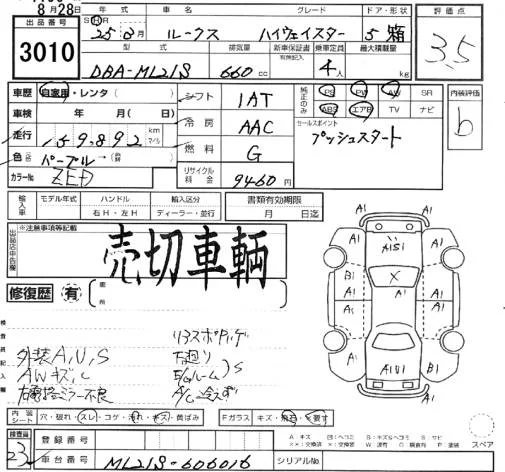 8月28日
年式
車名
グレード
ドア・形状
評価点
出品番号
3010
S
H
25年
月
ルークス
ハイウェイスター
5 箱
3.5
型式
排気量
新車保証書
乗車定員
最大積載量
DBA-ML21S
660 cc
有無記入
4人
kg
車歴
自家用・レンタ(
)
シフト
1AT
純正のみ
PS
PW
AW
SR
内装評価
車検
年
月(
日)
冷房
AAC
ABS
エアB
TV
ナビ
b
走行
159,892
km
マイル
燃料
G
セールスポイント
プッシュスタート
色
パープル
リサイクル料金
9460円
カラーNo
ZED
輸入車
モデル年式
ハンドル
輸入区分
書類有効期限
右H・左H
ディーラー・並行
月
日迄
※注意事項等記載
出品店申告欄
売切車輌
修復歴
有
箇所
検査員記入欄
リヤスポ
外装A,U,S
下廻り
S
AWキズ,C
E/gルーム
右電格ミラー不良
A/C冷えず
内装シート
穴・破れ・スレ・コゲ・汚れ・キズ・黄ばみ
Fガラス
キズ・飛石・要す
スペア
A1
A1
A1
A1S1
A1
B1
X
B1
A1
A1
A1
A1
A1U1
A1
A1
A1
A：キズ
S：サビ
P：塗装
検査員
23
登録番号
車台番号
ML21S-606016
シリアルNo